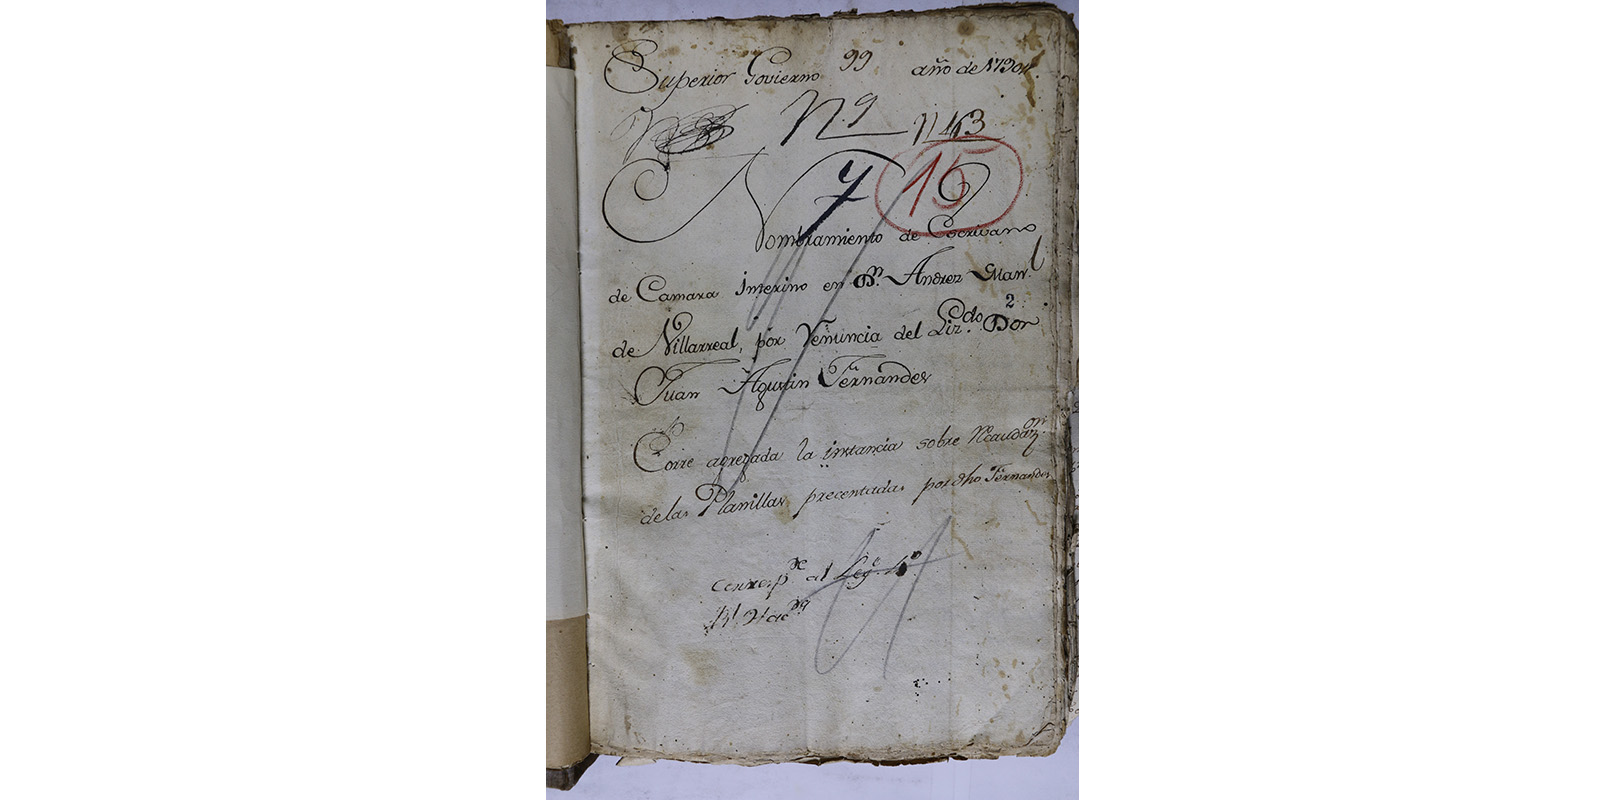 Superior Govierno 99 año de 1790
N. 9 N 463
7 15
Nombramiento de Escribano
de Camara Interino en Dn. Andrez Manl
de Villarreal, por Renuncia del Lizdo. Dor 2
Juan Agustin Fernandes
Corre agregada la instancia sobre Recaudazon.
de las Planillas precentadas por dho Fernandes
Corresp.de al Leg.o 4o